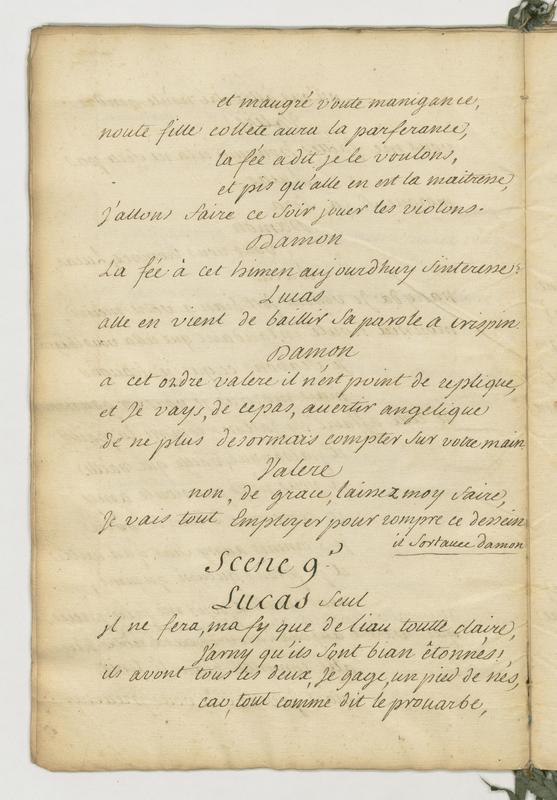 et maugré voute manigance,
noute fille collete aura la parferance,
la fée a dit je le voulons,
et pis qu'alle en est la maitresse,
j'allons faire ce soir jouer les violons.
Damon
La fée à cet himen aujourdhuy s'interesse?
Lucas
alle en vient de baillir sa parole a crispin
Damon
a cet ordre valere il n'est point de replique,
et Je vays, de ce pas, auertir angelique
de ne plus desormais compter sur votre main
Valere
non, de grace, laissez moy faire,
Je vais tout Employer pour rompre ce dessein
il sort auec damon
Scene 9e
Lucas seul
il ne fera, ma fy que de liau toutte claire,
Jarny qu'ils sont bian étonnés!
ils avont tous les deux, Je gage, un pied de nés,
car, tout comme dit le prouarbe,